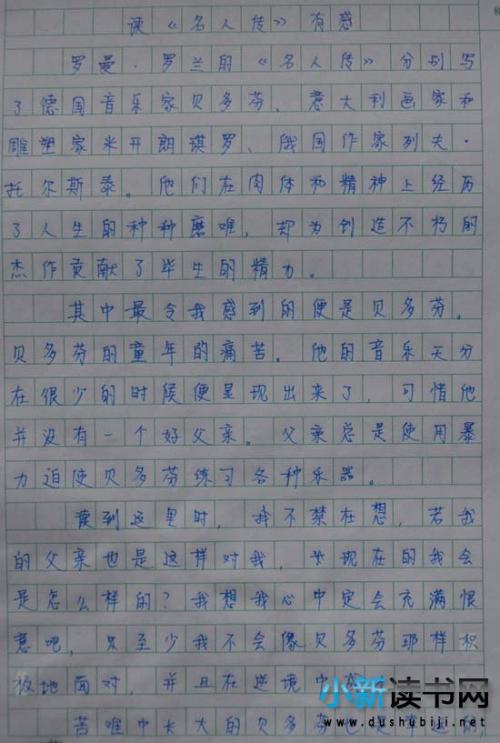 读《名人传》有感
罗曼·罗兰的《名人传》分别写
了德国音乐家贝多芬、意大利画家和
雕塑家米开朗琪罗、俄国作家列夫·
托尔斯泰。他们在肉体和精神上经历
了人生的种种磨难,却为创造不朽的
杰作贡献了毕生的精力。
其中最令我感到的便是贝多芬。
贝多芬的童年的痛苦。他的音乐天分
在很少的时候便呈现出来了,可惜他
并没有一个好父亲。父亲总是使用暴
力迫使贝多芬练习各种乐器。
读到这里时,我不禁在想,若我
的父亲也是这样对我,现在的我会
是怎么样的?我想我心中定会充满恨
意吧,至少我不会像贝多芬那样积
极地面对,并且在逆境中
苦难中长大的贝多芬也是
小新读书网
www.dushubiji.net